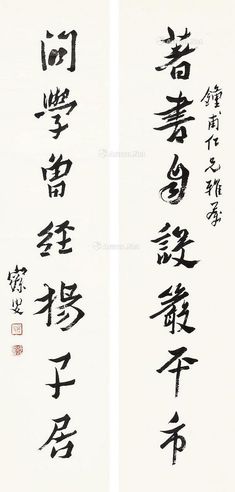 鐘甫仁兄雅
著書自設嚴平市
問學曾經楊子居
叟